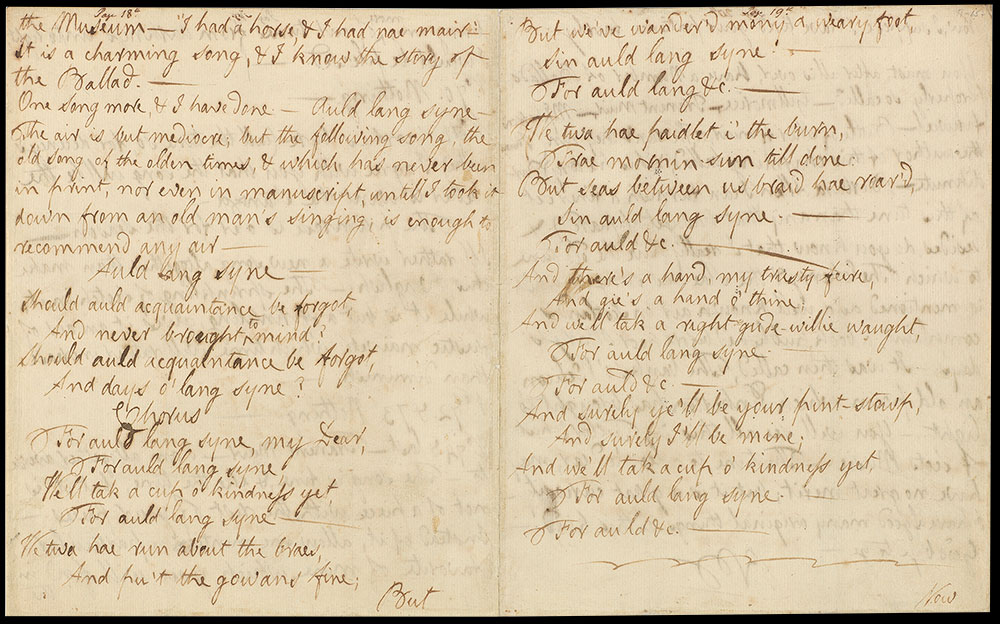 Pay. 18th
the Museum — "I had a horse, & I had nae mair:"
It is a charming song, & I know the story of
the Ballad. —
One song more, & I have done. — Auld lang syne —
The air is but mediocre; but the following song, the
old song of the olden times, & which has never been
in print, nor even in manuscript, untill I took it
down from an old man's singing; is enough to
recommend any air —
Auld lang syne —
Should auld acquaintance be forgot,
And never brought to mind?
Should auld acquaintance be forgot,
And days o' lang syne?
Chorus
For auld lang syne my Dear,
For auld lang syne
We'll tak a cup o' kindness yet
For auld lang syne —
We twa hae run about the braes,
And pu't the gowans fine;
But
19th
But we've wander'd mony a weary foot
Sin auld lang syne. —
For auld lang &c. —
We twa hae paidlet i' the burn,
Frae mornin sun till dine:
But seas between us braid hae roar'd,
Sin auld lang syne. —
For auld &c. —
And there's a hand, my trusty feire,
And gie's a hand o' thine;
And we'll tak a right gude-willie waught,
For auld lang syne —
For auld &c —
And surely ye'll be your pint-stowp,
And surely I'll be mine;
And we'll tak a cup o' kindness yet,
For auld lang syne.
For auld &c. —
Now